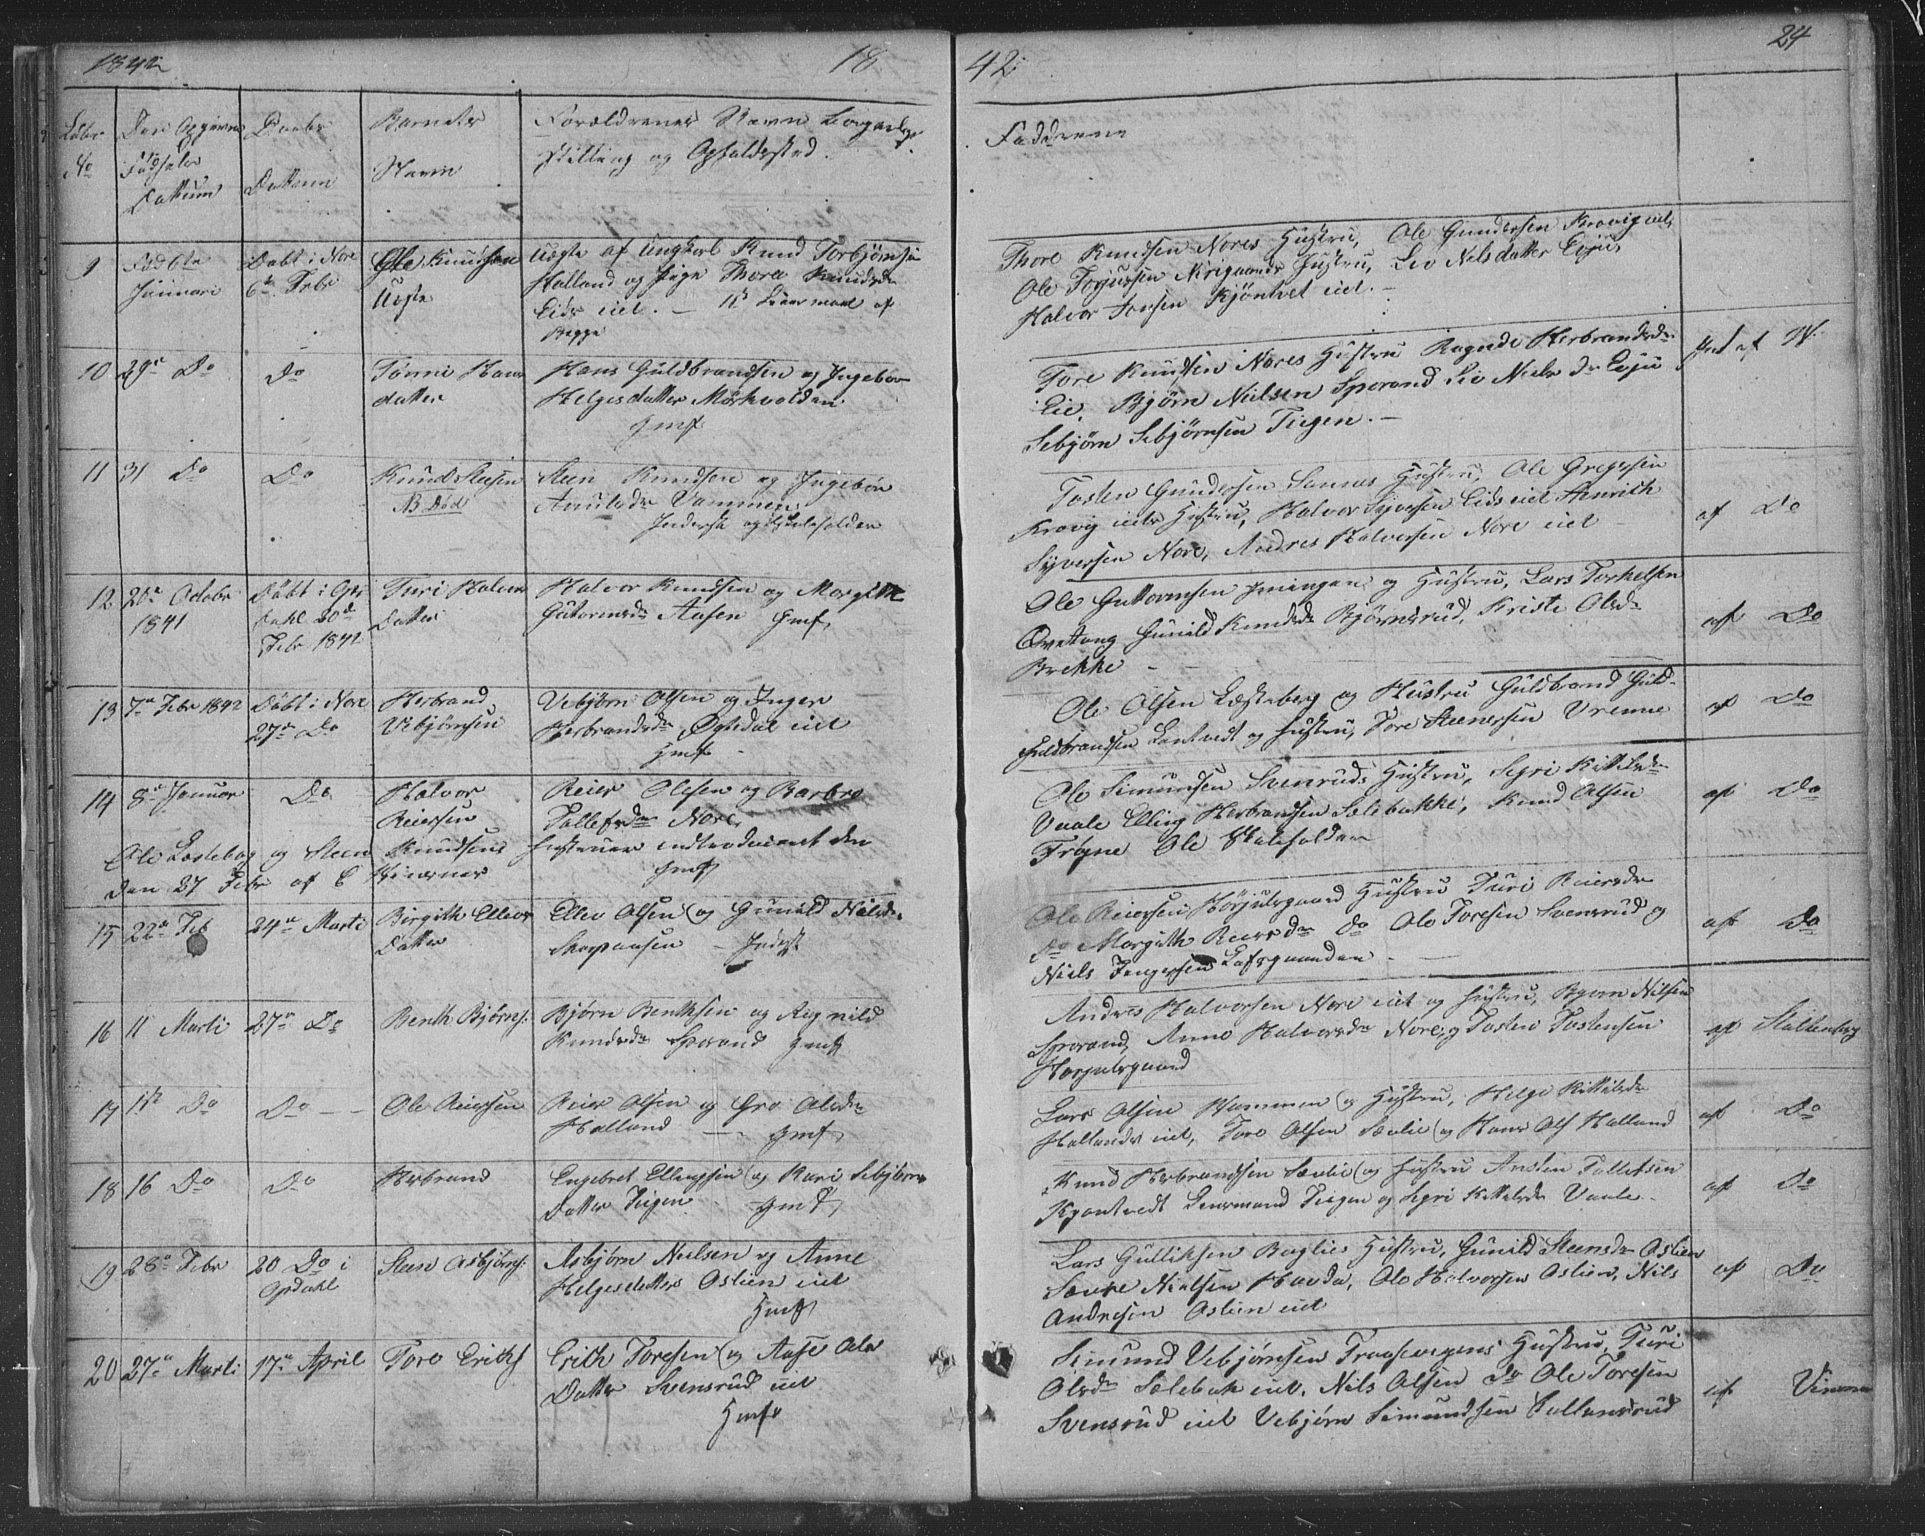 1842
18
42
24
Løbe
No
Den Opgivne
Fødsels
Dattum
Daabs
Dattum
Barnets
Navn
Forældrenes Navn Borgerlge
Stilling og Opholdssted.
Fadderne
9
Fød 6te
Januari
Døbt i Nore
6te Febr
Ole Knudsen
Uægte
Uægte af Ungkarl Knud Torbjønsen
Halland og Pige Thore Knudsdr
Eids eiet. — 1ste Leiermaal af
Begge
Thore Knudsen Nores Hustru, Ole Gundersen Kravig eiet,
Ole Torjussen Norigaards Hustru, Liv Nilsdatter Evju
Halvor Tovsen Kjøntvet eiet. —
10
29de Do
Do
Tonni Hans
datter
Hans Guldbrandsen og Ingebor
Helgesdatter Mørkvolden
gmf
Tore Knudsen Nores Hustru Ragnde Herbrandsdr
Eie, Bjørn Nielsen Sporand Liv Niels Dr Evju
Sebjørn Sebjørnsen Teigen. —
Int af N.
11
31 Do
Do
Knud Steesen
NB Død
Steen Knudsen og Ingebør
Amundsdr Vammen
Inderst og Huusfolden
Tosten Gundersen Sannes Hustru, Ole Gregersen
Kravig eiets Hustru, Halvor Syversen Eids eiet Henrith
Syversen Nore, Andres Halvorsen Nore eiet
af Do
12
20de Octobr
1841
Døbt i Op
dahl 20de
Febr 1842
Turi Halvor
Datter
Halvor Knudsen og Margith
Gutormsdr Aasen Gmf
Ole Guttormsen Imingen og Hustru, Lars Torkelsen
Øvettong Gunild Knudsdr Bjørnsrud, Kristi Olsdr
Brekke
af Do
13
7de Febr 1842
Døbt i Nore
27de Do
Herbrand
Vebjørnsen
Vebjørn Olsen og Inger
Herbrandsdr Øysdal eiet
Gmf
Ole Olsen Læsteberg og Hustru Guldbrand Guld-
Guldbrandsen Lantvedt og Hustru, Tore Steenersen Vrenne
af Do
14
8de Januar
Do
Halvor
Reiersen
Reier Olesen og Barbro
Tollefsdr Nore
Ole Læstebag og Steen Knudsens Hustruer indtroduceret den
Den 27 Febr af C
gmf
Ole Simundsen Svensruds Hustru, Segri Kittilsdr
Vaale Elling Herbrandsen Sælebakke, Knud Olsen
Trøgne Ole Skalefolden
af Do
15
22de Feb
24de Marti
Birgith Ellevs
Datter
Ellev Olsen og Gunild Nielsdr
Skopaasen — Inderst
Ole Reiersen Børjulsgaard Hustru Turi Reiersdr
Do Margith Reiersdr Do Ole Toresen Svensrud og
Niels Ingersen Tufsgaarden
af Do
16
11 Marti
27de Do
Benth Bjørns:
Bjørn Benthsen og Ragnild
Knudsdr Sporand gmf
Andres Halvorsen Nore eiet og Hustru, Bjørn Nilsen
Sporand, Anne Halvorsdr Nore, og Tosten Tostensen
Horjulsgaard
af Stoltenberg
17
14de Do
Do — —
Ole Reiersen
Reier Olsen og Gro Olsdr
Halland — gmf
Lars Olsen Vammen og Hustru, Helge Kittilsdr
Hallands eiet, Tore Olsen Sævlie og Hans Ols Halland
af Do
18
16 Do
Do
Herbrand
Engebret Ellingsen og Kari Sebjørns
Datter Teigen gmf
Knud Herbrandsen Sævlie og Hustru Ansten Tollefsen
Kjøntvedt Leensmand Teigen og Segri Kittelsdr Vaale.
af Do
19
28de Febr
20 Do i
Opdahl
Steen Asbjørns:
Asbjørn Nielsen og Anne
Helgesdatter Oslien eiet
Gmf
Lars Gulliksen Baglies Hustru, Gunild Steensdr Oslien
Sævre Nielsen Haarda, Ole Halvorsen Oslien, Nils
Andresen Oslien eiet
af Do
20
27de Marti
17de April
Tore Eriks
Erich Toresen og Aase Ols
Datter Svensrud eiet
Gmf
Simund Vebjørnsen Traasevegens Hustru, Turi
Olsdr Sælebak eiet, Nils Olsen Do Ole Toresen
Svensrud eiet Vebjørn Simundsen Sallansrud
af